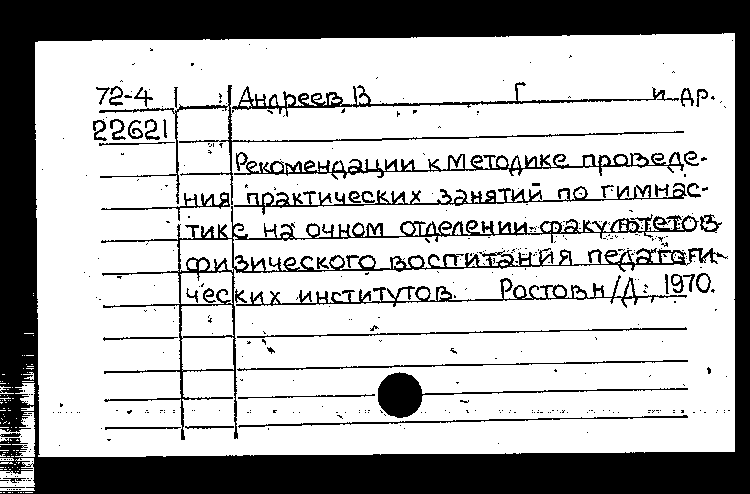 72-4 Андреев В Г и др.
22621
Рекомендации к методике проведе-
ния практических занятий по гимнас-
тике на очном отделении факультетов
физического воспитания педагоги-
ческих институтов. Ростов н/Д:, 1970.